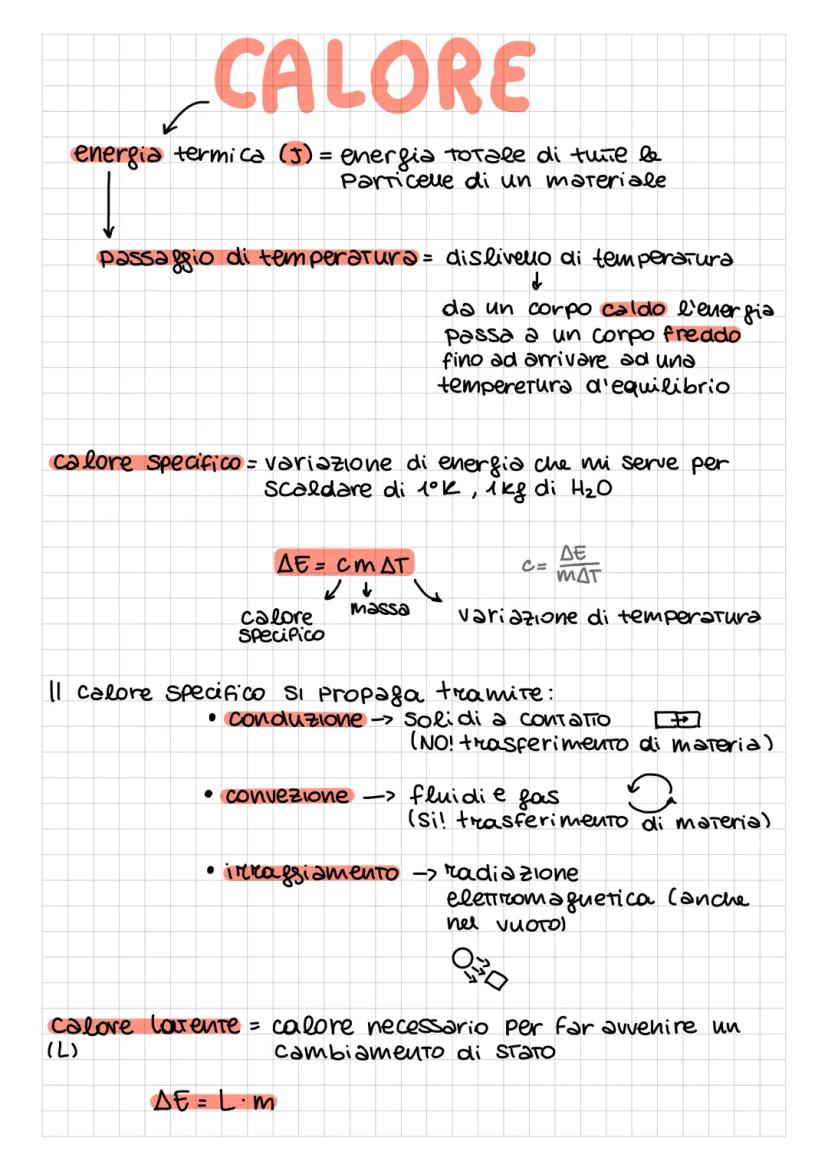 CALORE
energia termica (J) = energia totale di tutte le
particelle di un materiale
passaggio di temperatura = dislivello di temperatura
da un corpo caldo l'energia
passa a un corpo freddo
fino ad arrivare ad una
temperetura d'equilibrio
calore specifico = variazione di energia che mi serve per
scaldare di 1°K, 1kg di H₂O
ΔE = cmΔT
c = ΔE/mΔT
calore specifico
massa
variazione di temperatura
Il calore specifico si propaga tramite:
• conduzione -> solidi a contatto
(NO! trasferimento di materia)
• convezione -> fluidi e gas
(Si! trasferimento di materia)
• irraggiamento -> radiazione
elettromagnetica (anche
nel vuoto)
calore latente = calore necessario per far avvenire un
(L) cambiamento di stato
ΔE = L · m